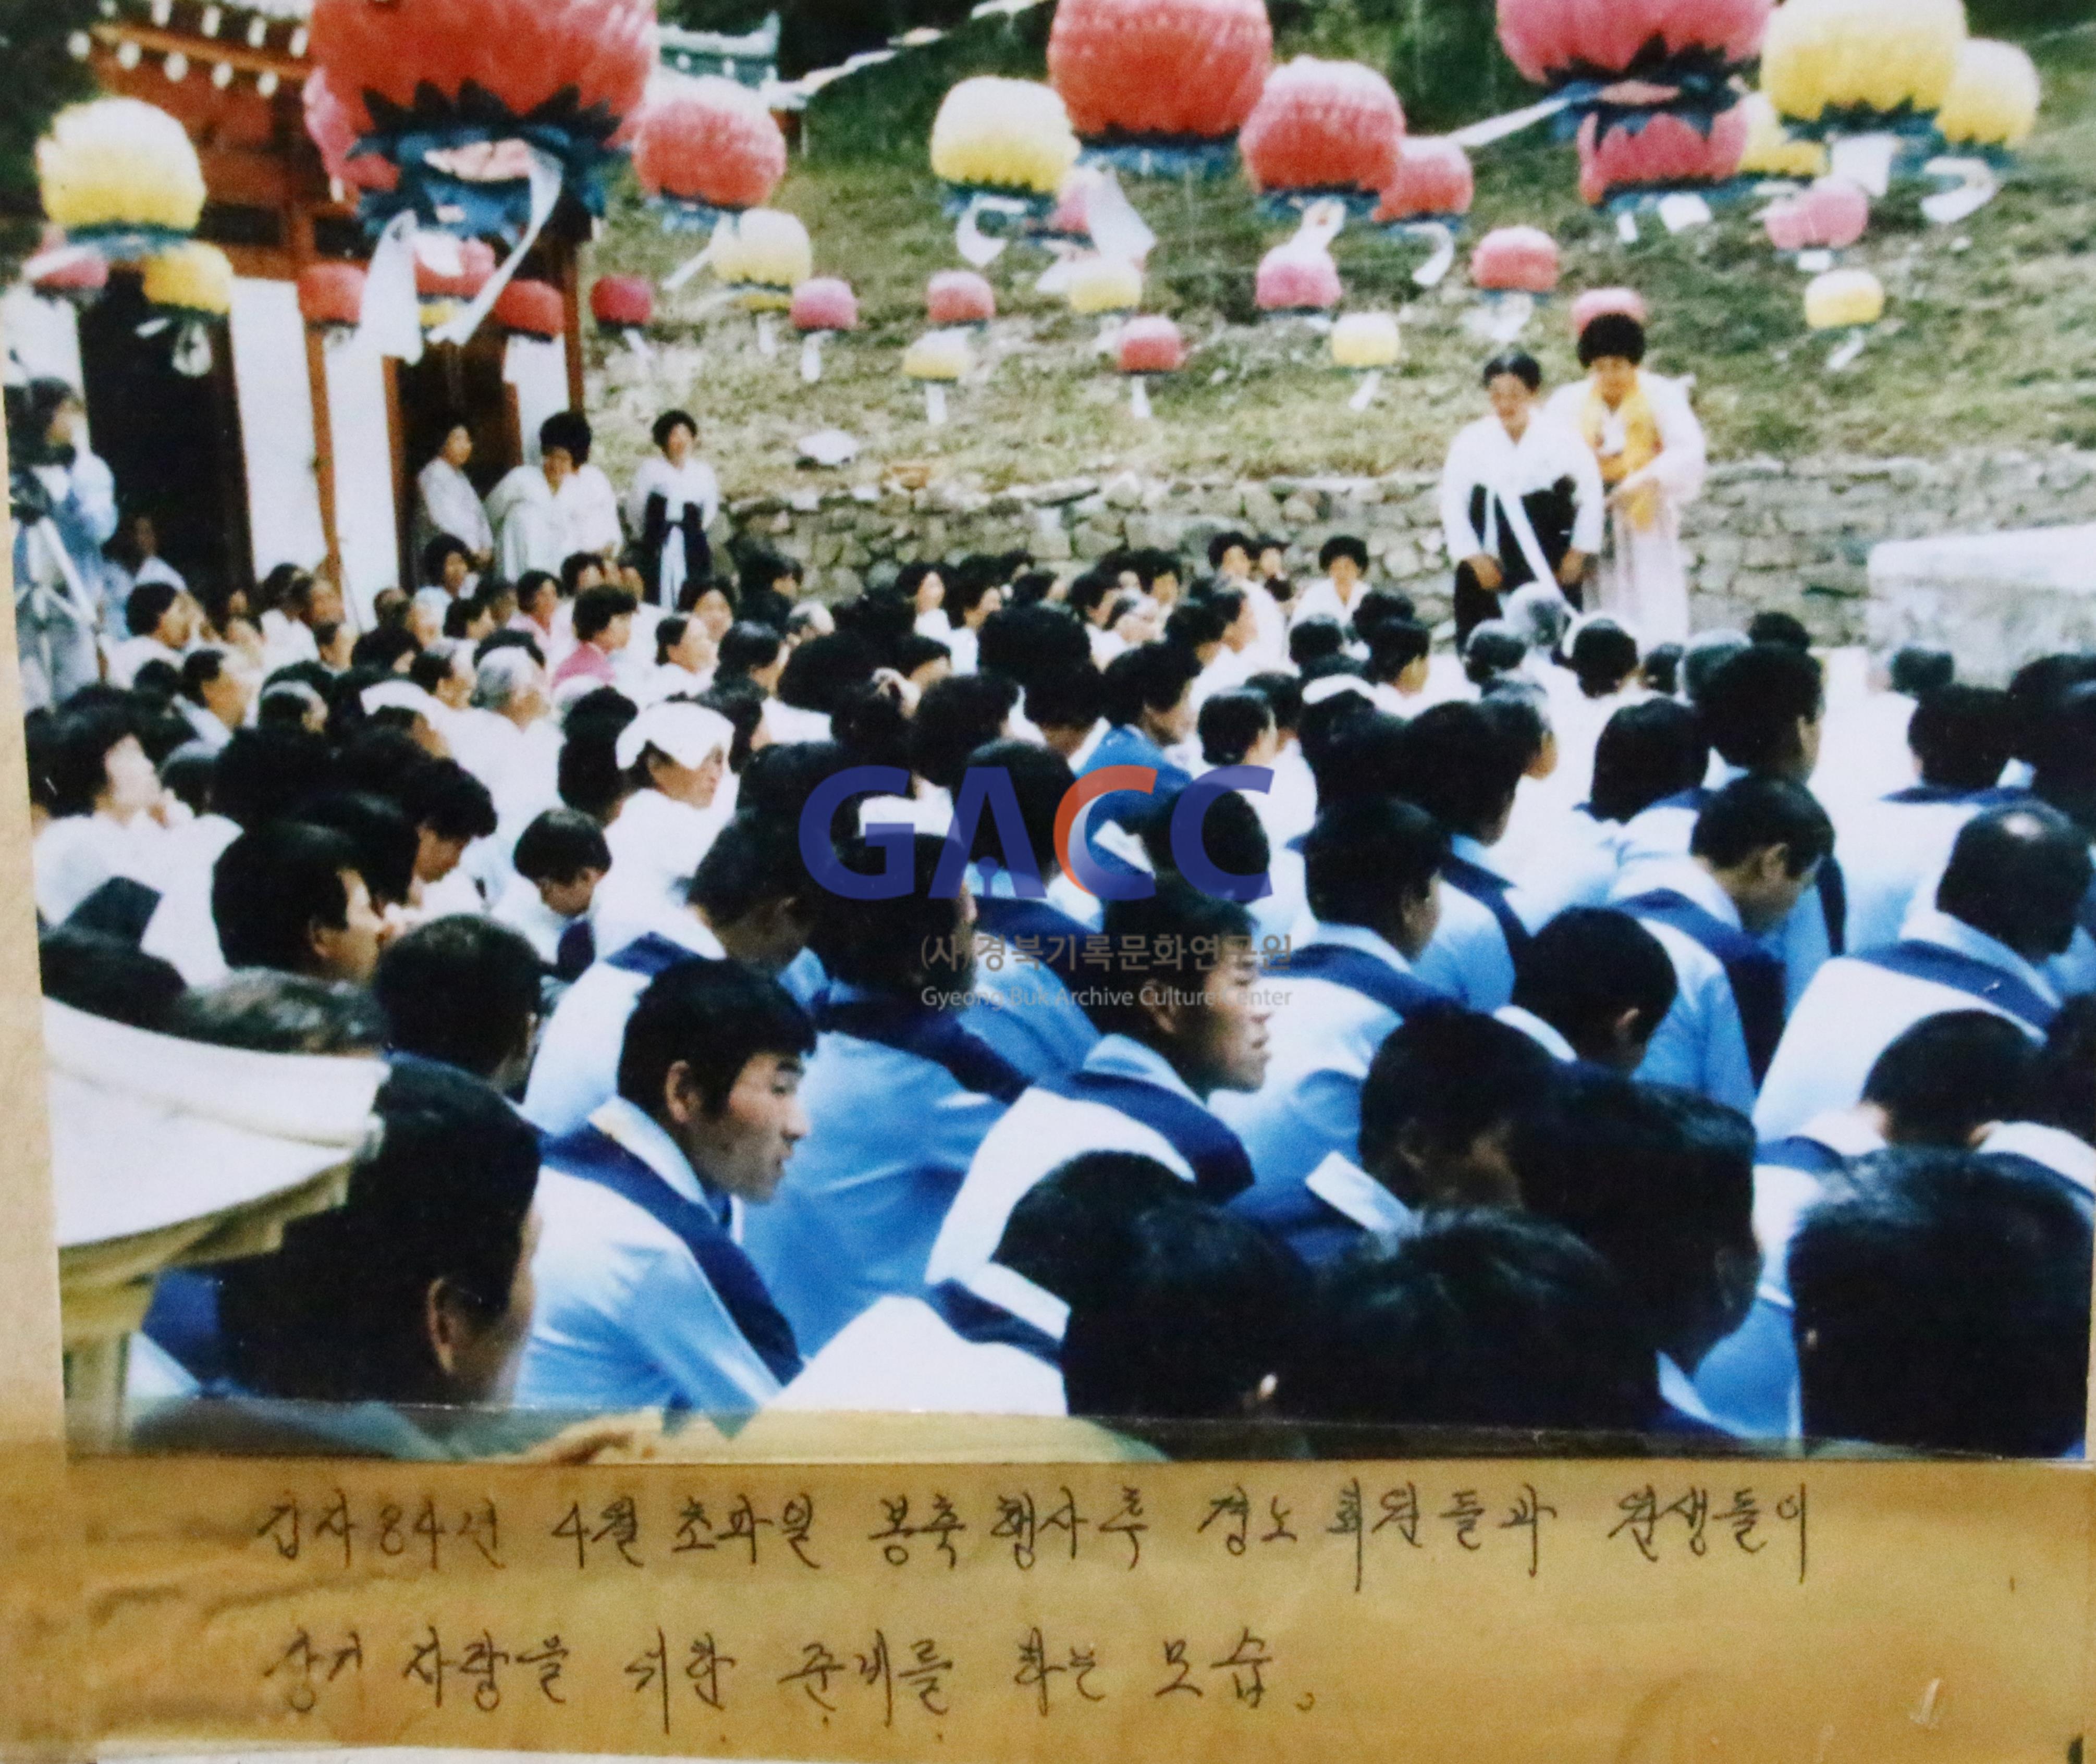 GACC
(사)경북기록문화연구원
Gyeong Buk Archive Culture Center
갑자84년 4월 초파일 봉축행사후 경노회원들과 원생들이
장기 자랑을 위한 준비를 하는 모습.